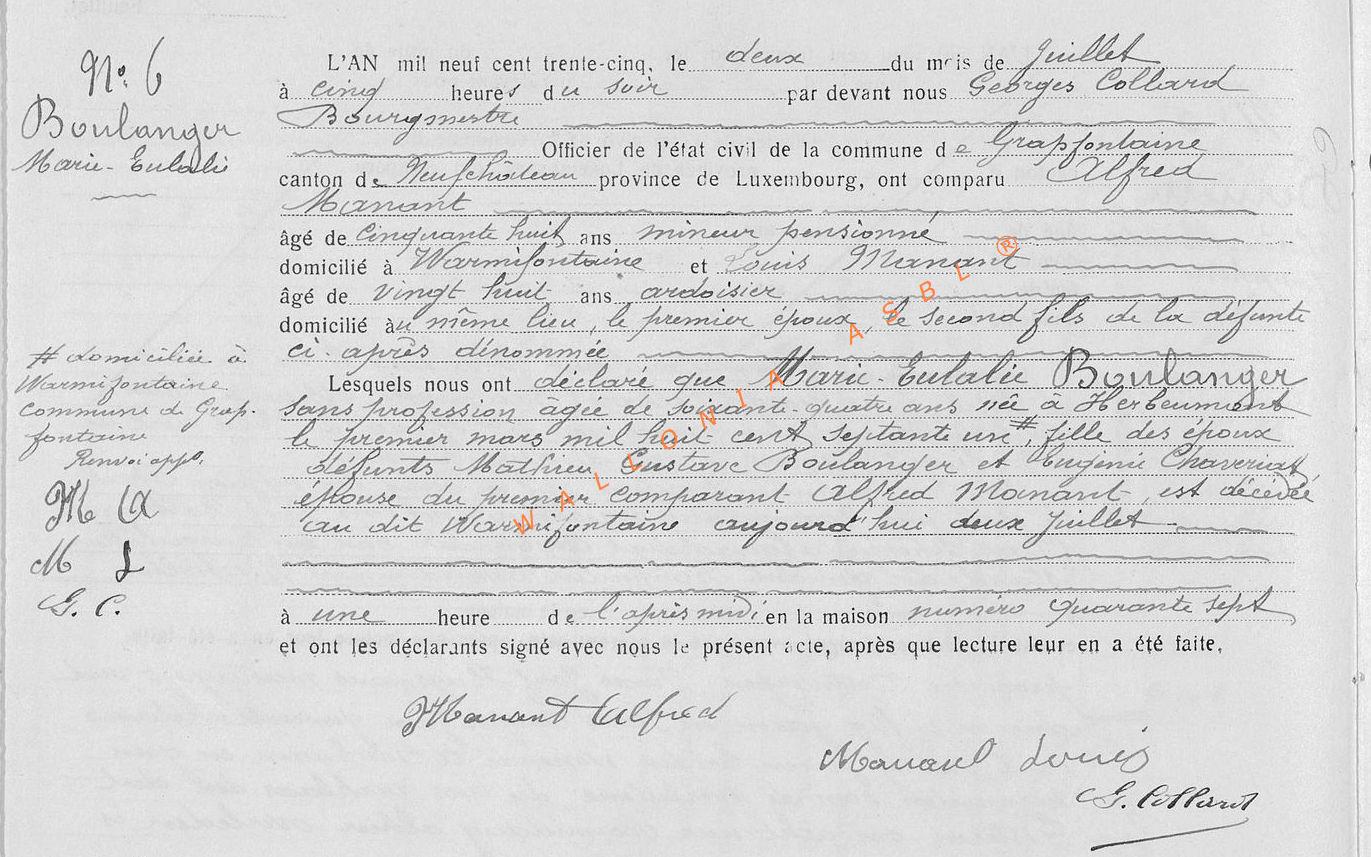 N° 6
Boulanger
Marie-Eulalie
L'AN mil neuf cent trente-cinq, le deux du mois de Juillet
à cinq heures du soir par devant nous Georges Collard
Bourgmestre
Officier de l'état civil de la commune de Grapfontaine
canton de Neufchâteau province de Luxembourg, ont comparu Alfred
Manant
âgé de cinquante huit ans mineur pensionné
domicilié à Warmifontaine et Louis Manant
âgé de vingt huit ans ardoisier
domicilié au même lieu, le premier époux, le second fils de la défunte
ci-après dénommée
Lesquels nous ont déclaré que Marie-Eulalie Boulanger
sans profession âgée de soixante-quatre ans née à Herbeumont
le premier mars mil huit cent septante un #, fille des époux
défunts Mathieu Gustave Boulanger et Eugénie Chaveriat
épouse du premier comparant Alfred Manant, est décédée
au dit Warmifontaine aujourd'hui deux Juillet
à une heure de l'après midi en la maison numéro quarante sept
et ont les déclarants signé avec nous le présent acte, après que lecture leur en a été faite,
# domiciliée à
Warmifontaine
commune de Grap-
fontaine
Renvoi appé.
M A
M L
G. C.
Manant Alfred
Manant Louis
G. Collard
WALLONIA ASBL ®